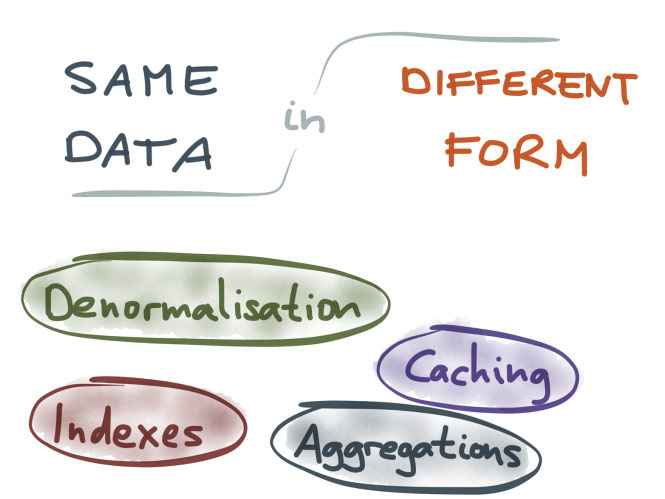 SAME
DATA
in
DIFFERENT
FORM
Denormalisation
Caching
Indexes
Aggregations